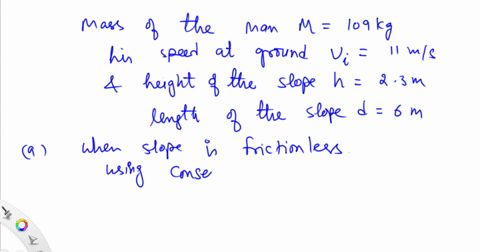 Mass of the man M = 109 kg
his speed at ground Vi = 11 m/s
& height of the slope h = 2.3 m
length of the slope d = 6 m
(a) when slope is frictionless
using conse